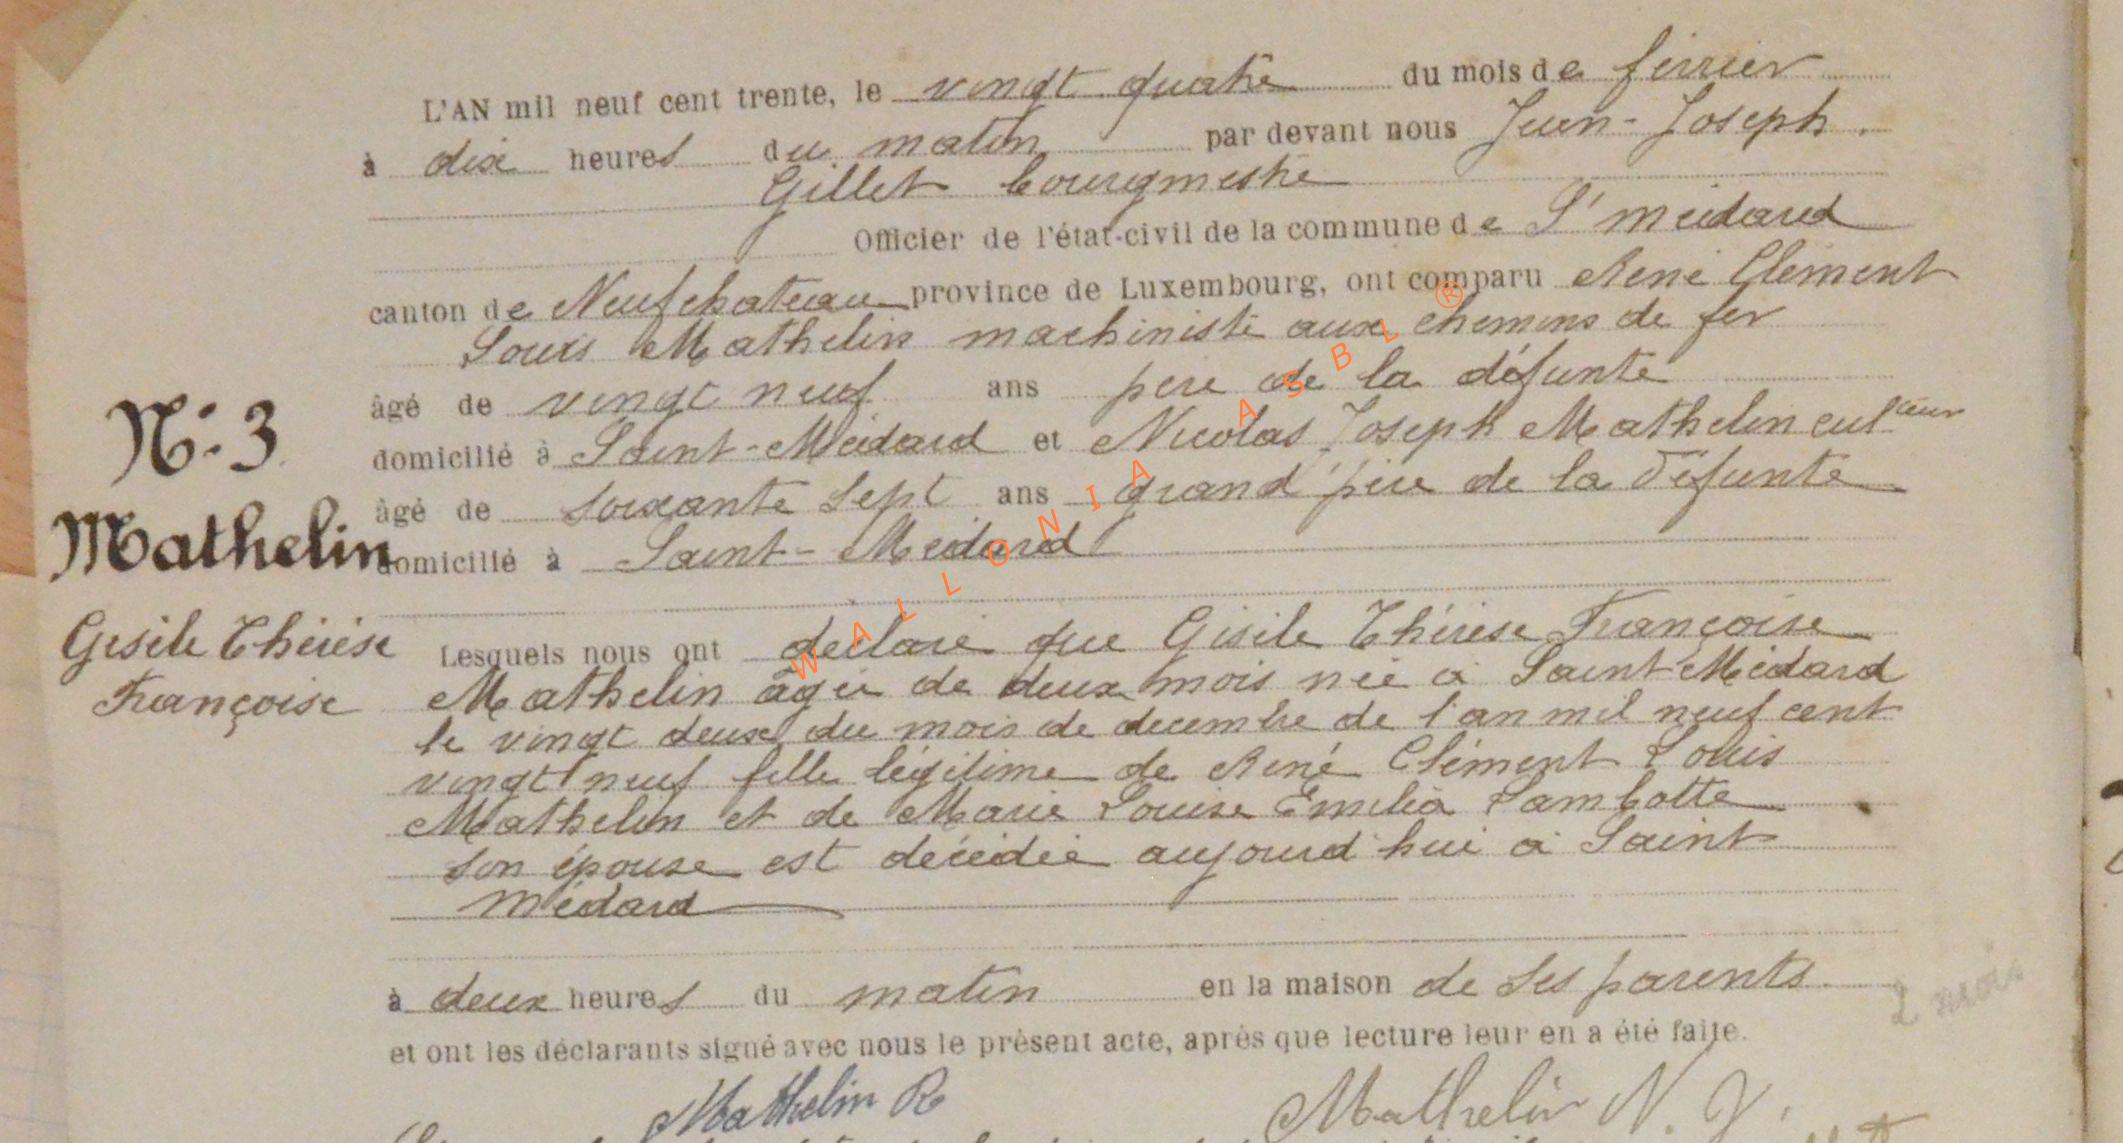 L'AN mil neuf cent trente, le vingt quatre du mois de février
à dix heures du matin par devant nous Jean-Joseph
Gillet bourgmestre
Officier de l'état-civil de la commune de St médard
canton de Neufchateau province de Luxembourg, ont comparu René Clément
Louis Mathelin machiniste aux chemins de fer
âgé de vingt neuf ans père de la défunte
domicilié à Saint-Médard et Nicolas Joseph Mathelin cult.teur
âgé de soixante sept ans grand'père de la défunte
domicilié à Saint-Médard
N° 3
Mathelin
Gisèle Thérèse
Françoise
Lesquels nous ont déclaré que Gisèle Thérèse Françoise
Mathelin agée de deux mois née à Saint-Médard
le vingt deux du mois de decembre de l'an mil neuf cent
vingt neuf fille légitime de René Clément Louis
Mathelin et de Marie Louise Emilia Lambotte
son épouse est décédée aujourd'hui à Saint
Médard
à deux heures du matin en la maison de ses parents
2 mois
et ont les déclarants signé avec nous le présent acte, après que lecture leur en a été faite.
Mathelin R Mathelin N. J.
WALLONIA ASBL ®